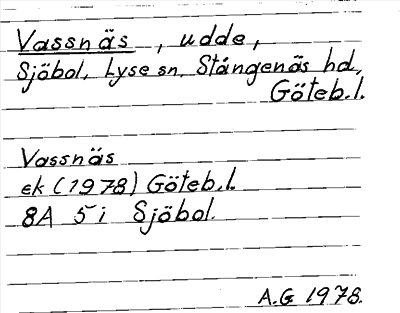 Vassnäs, udde,
Sjöbol, Lyse sn, Stångenäs hd,
Göteb.l.
Vassnäs
ek (1978) Göteb.l.
8A 5i Sjöbol.
A.G 1978.